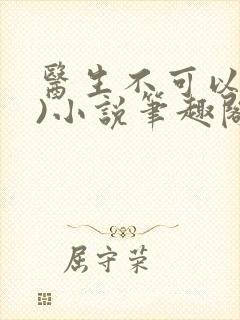 醫生不可以
)小說筆趣閣
屈守荣